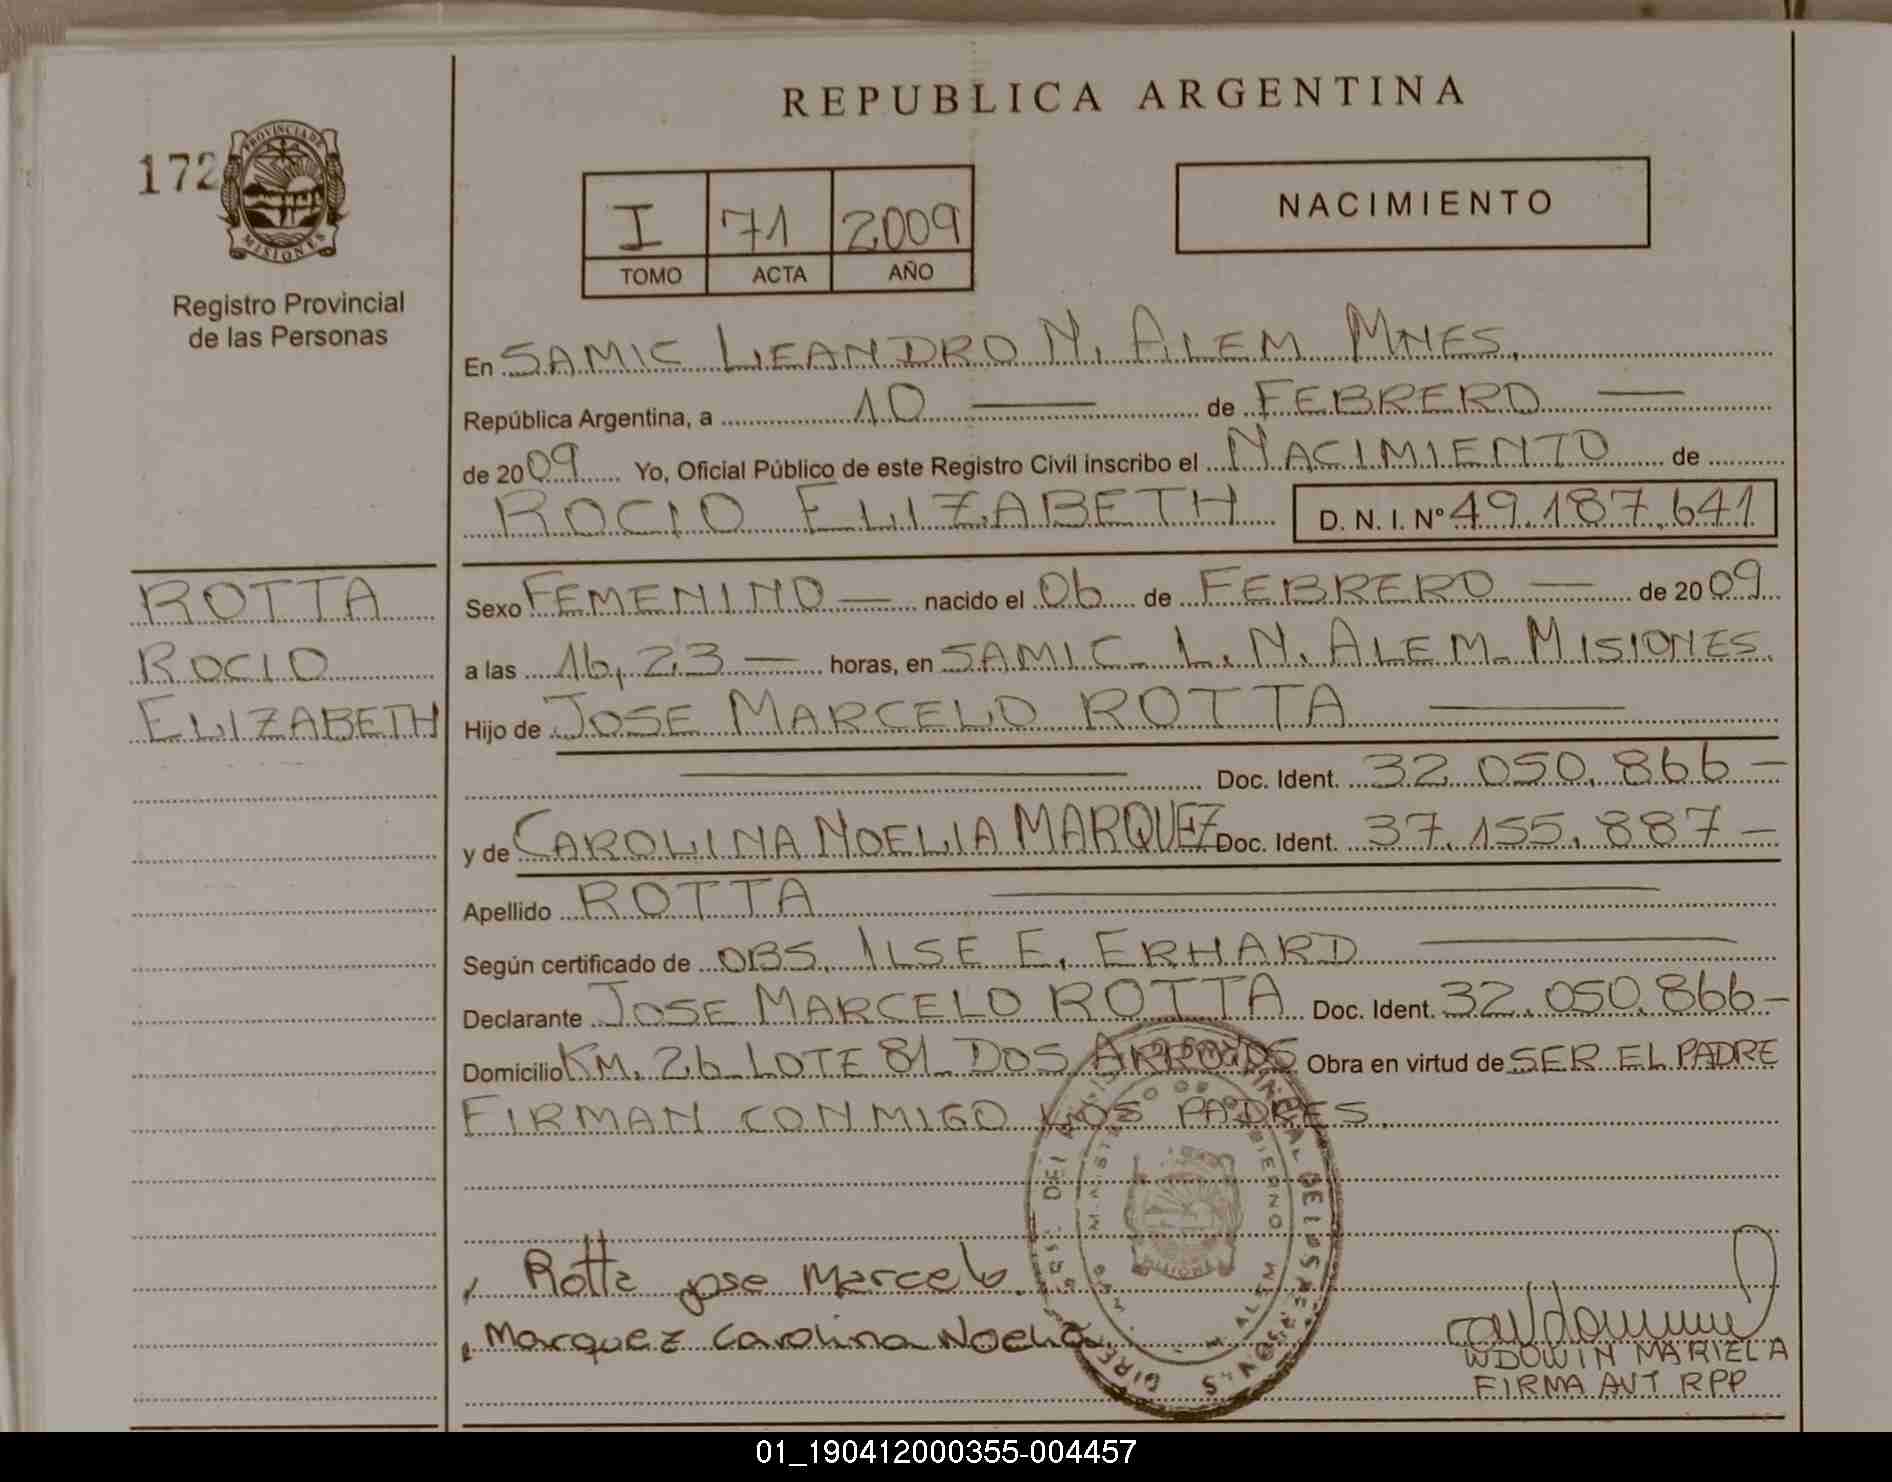 REPUBLICA ARGENTINA
172
PROVINCIA DE
MISIONES
Registro Provincial
de las Personas
I 71 2009
TOMO ACTA AÑO
NACIMIENTO
En SAMIC LEANDRO N. ALEM MNES.
República Argentina, a 10 — de FEBRERO —
de 2009 Yo, Oficial Público de este Registro Civil inscribo el NACIMIENTO de
ROCIO ELIZABETH D. N. I. Nº 49.187.641
ROTTA
ROCIO
ELIZABETH
Sexo FEMENINO — nacido el 06 de FEBRERO — de 2009
a las 16,23 — horas, en SAMIC L. N. ALEM MISIONES.
Hijo de JOSE MARCELO ROTTA —
— Doc. Ident. 32.050.866 —
y de CAROLINA NOELIA MARQUEZ Doc. Ident. 37.155.887 —
Apellido ROTTA —
Según certificado de OBS. ILSE E. ERHARD —
Declarante JOSE MARCELO ROTTA Doc. Ident. 32.050.866 —
Domicilio KM. 26 LOTE 81 DOS ARROYOS Obra en virtud de SER EL PADRE
FIRMAN CONMIGO LOS PADRES.
Rotta jose Marcelo.
Marquez Carolina Noelia
WDOWIN MARIELA
FIRMA AUT RPP
01_190412000355-004457